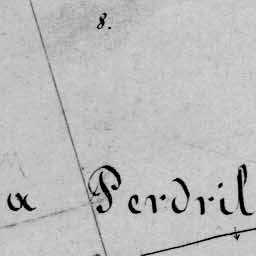 8.
a Perdril